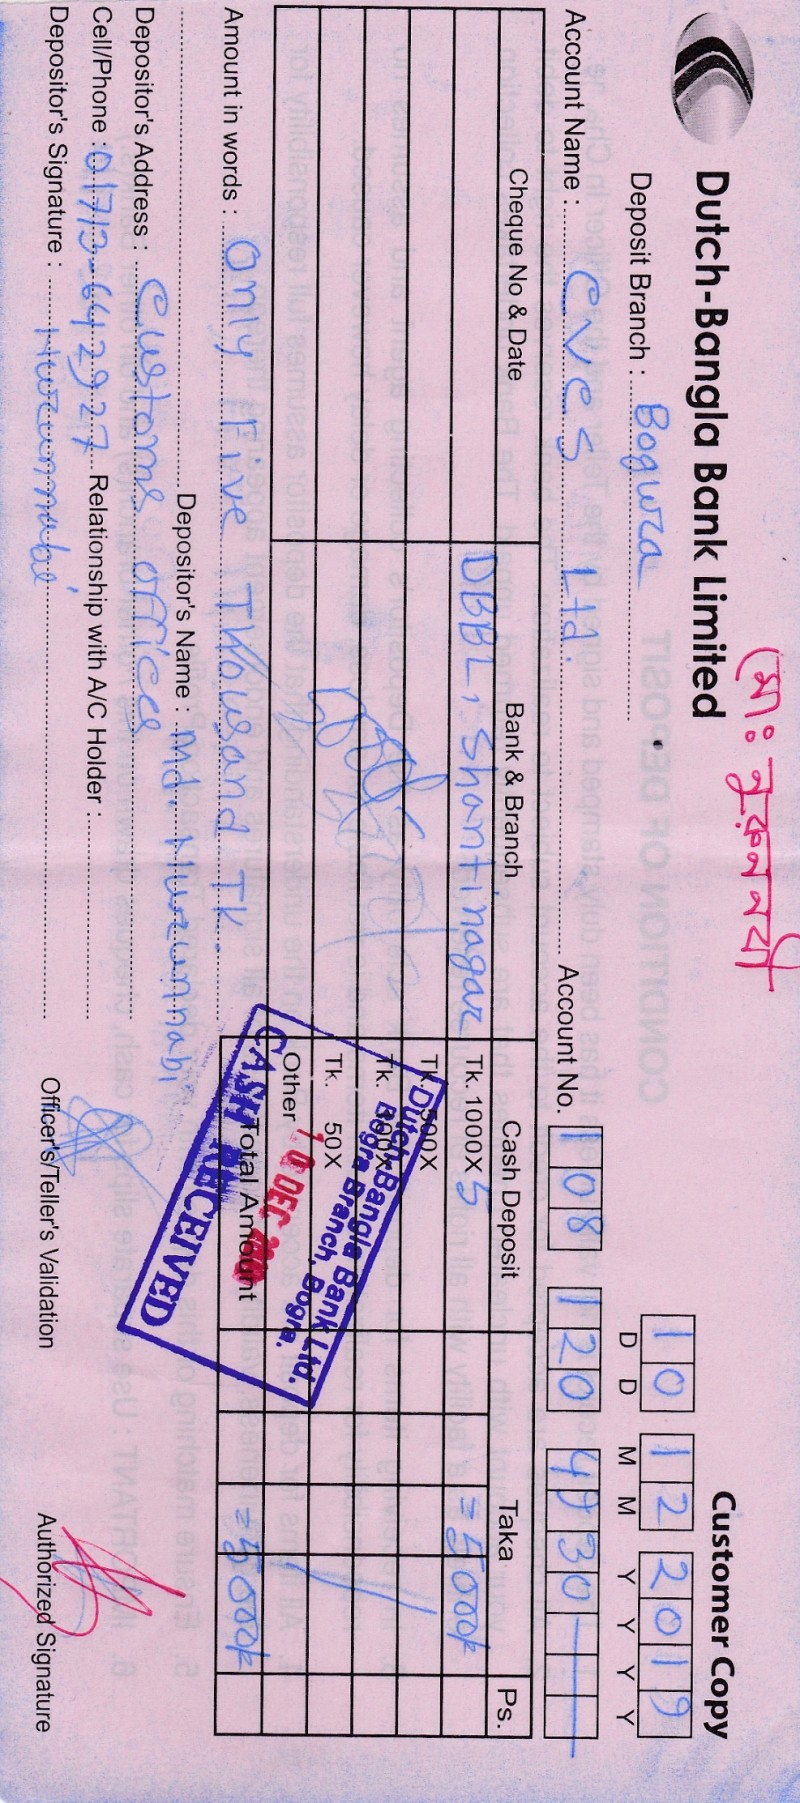 মো: নুরুন নবী
Dutch-Bangla Bank Limited
Customer Copy
Deposit Branch : Bogura
10 12 2019
D D M M Y Y Y Y
Account Name : CVCS Ltd.
Account No. 108 120 4930
Cheque No & Date Bank & Branch Cash Deposit Taka Ps.
DBBL, Shantinagar Tk. 1000X 5 =5000/-
Tk. 500X
Tk. 100X
Tk. 50X
Other
Total Amount =5000/-
Dutch-Bangla Bank Ltd.
Bogra Branch, Bogra.
10 DEC
CASH RECEIVED
Amount in words : only Five Thousand TK.
Depositor's Name : Md. Nurunnabi
Depositor's Address : Customs office
Cell/Phone : 01713-642927 Relationship with A/C Holder :
Depositor's Signature : Nurunnabi
Officer's/Teller's Validation
Authorized Signature